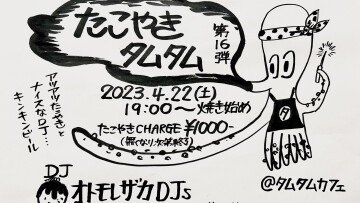 たこやき
タムタム
第16弾
2023.4.22(土)
19:00〜焼き始め
たこやきCHARGE ¥1000-
(無くなり次第終了)
アツアツたこやきと
ナイスなDJ...
キンキンビール
タ
DJ
オトモレザカDJs
@タムタムカフェ